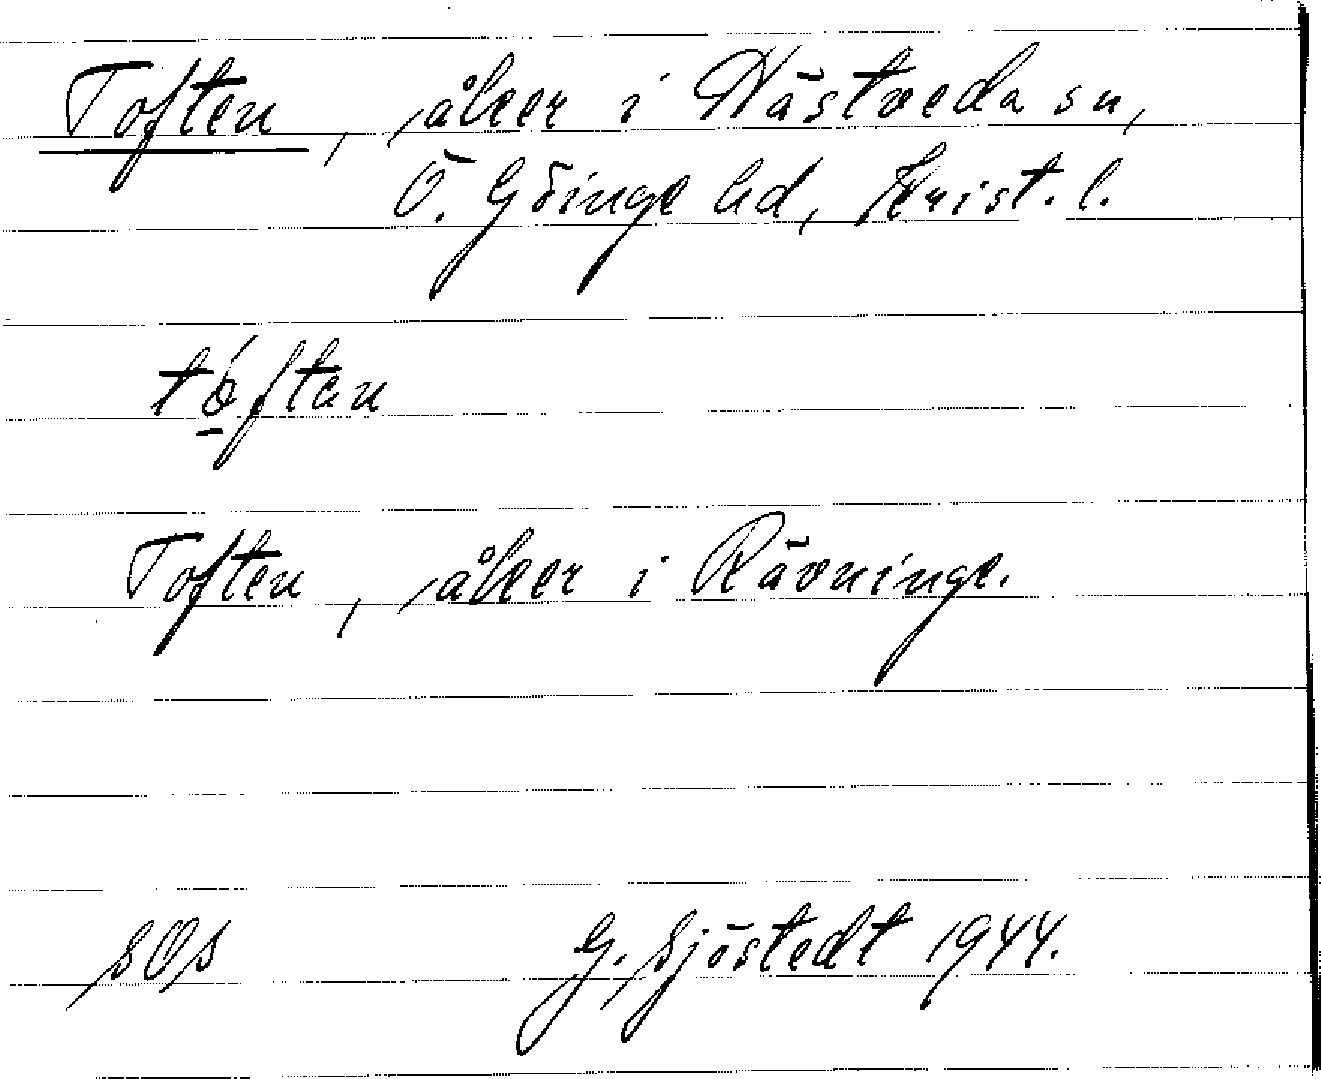 Toften, åker i Hästveda sn,
Ö. Göinge hd, Krist. l.
tó̱ftan
Toften, åker i Rävninge.
sOs G. Sjöstedt 1944.